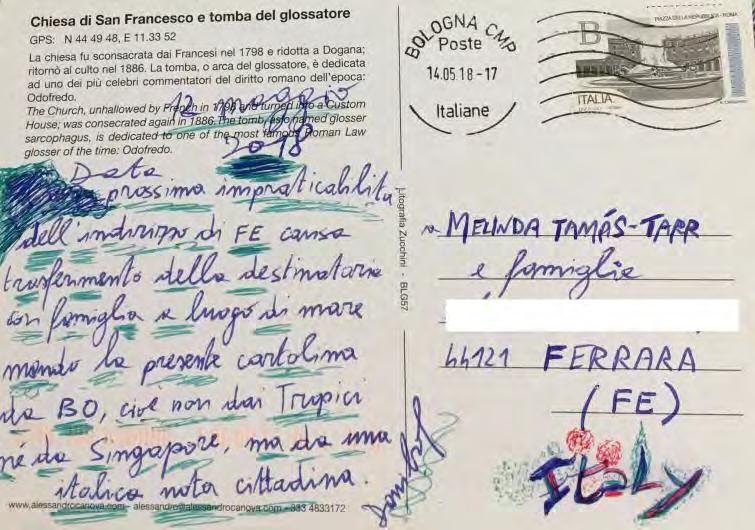 Chiesa di San Francesco e tomba del glossatore
GPS: N 44 49 48, E 11.33 52
La chiesa fu sconsacrata dai Francesi nel 1798 e ridotta a Dogana;
ritornò al culto nel 1886. La tomba, o arca del glossatore, è dedicata
ad uno dei più celebri commentatori del diritto romano dell'epoca:
Odofredo.
The Church, unhallowed by French in 1798 and turned into a Custom
House; was consecrated again in 1886. The tomb, also named glosser
sarcophagus, is dedicated to one of the most famous Roman Law
glosser of the time: Odofredo.
12 maggio
2018
Data
prossima impraticabilità
dell'indirizzo di FE causa
trasferimento della destinataria
con famiglia a luogo di mare
mando la presente cartolina
da BO, cioè non dai Tropici
né da Singapore, ma da una
italica nota cittadina.
www.alessandrocanova.com - alessandro@alessandrocanova.com - 333 4833172
Litografia Zucchini - BLG57
BOLOGNA CMP
Poste
14.05.18-17
Italiane
PIAZZA DELLA REPUBBLICA - ROMA
B
ITALIA
a MELINDA TAMÁS-TARR
e famiglia
44121 FERRARA
(FE)
Italy